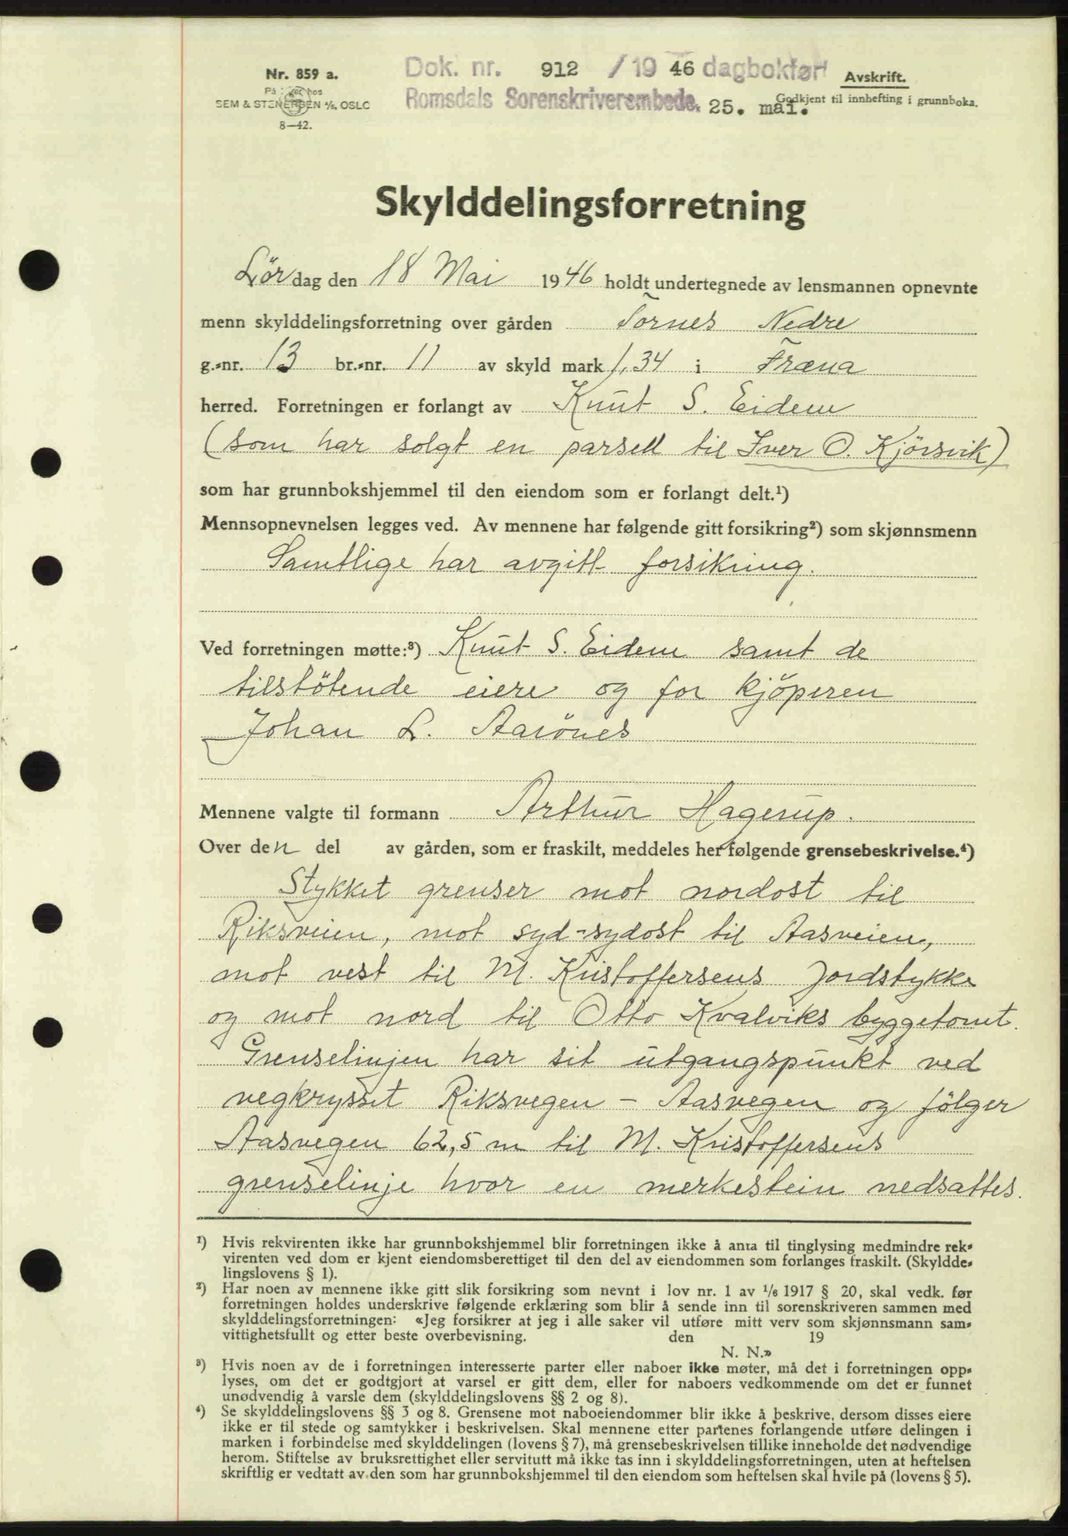 Nr. 859 a.
På hos
SEM & STENERSEN A/S, OSLO
8—42.
Dok. nr. 912 / 19 46 dagbokført
Romsdals Sorenskriverembede. 25. mai.
Avskrift.
Godkjent til innhefting i grunnboka.
Skylddelingsforretning
Lördag den 18 Mai 1946 holdt undertegnede av lensmannen opnevnte
menn skylddelingsforretning over gården Tornes Nedre
g.-nr. 13 br.-nr. 11 av skyld mark 1,34 i Fræna
herred. Forretningen er forlangt av Knut S. Eidem
(som har solgt en parsell til Iver O. Kjörsvik)
som har grunnbokshjemmel til den eiendom som er forlangt delt.¹)
Mennsopnevnelsen legges ved. Av mennene har følgende gitt forsikring²) som skjønnsmenn
Samtlige har avgitt forsikring.
Ved forretningen møtte:³) Knut S. Eidem samt de
tilstötende eiere og for kjöperen
Johan L. Aarönes
Mennene valgte til formann Arthur Hagerup.
Over den del av gården, som er fraskilt, meddeles her følgende grensebeskrivelse.⁴)
Stykket grenser mot nordost til
Riksveien, mot syd-sydost til Aasveien,
mot vest til M. Kristoffersens Jordstykke
og mot nord til Otto Kvalviks byggetomt.
Grenselinjen har sit utgangspunkt ved
vegkrysset Riksvegen - Aasvegen og fölger
Aasvegen 62,5 m til M. Kristoffersens
grenselinje hvor en merkestein nedsattes.
¹) Hvis rekvirenten ikke har grunnbokshjemmel blir forretningen ikke å anta til tinglysing medmindre rek-
virenten ved dom er kjent eiendomsberettiget til den del av eiendommen som forlanges fraskilt. (Skyldde-
lingslovens § 1).
²) Har noen av mennene ikke gitt slik forsikring som nevnt i lov nr. 1 av 1/6 1917 § 20, skal vedk. før
forretningen holdes underskrive følgende erklæring som blir å sende inn til sorenskriveren sammen med
skylddelingsforretningen: «Jeg forsikrer at jeg i alle saker vil utføre mitt verv som skjønnsmann sam-
vittighetsfullt og etter beste overbevisning. den 19
N. N.»
³) Hvis noen av de i forretningen interesserte parter eller naboer ikke møter, må det i forretningen opp-
lyses, om det er godtgjort at varsel er gitt dem, eller for naboers vedkommende om det er funnet
unødvendig å varsle dem (skylddelingslovens §§ 2 og 8).
⁴) Se skylddelingslovens §§ 3 og 8. Grensene mot naboeiendommer blir ikke å beskrive, dersom disses eiere
ikke er til stede og samtykker i beskrivelsen. Skal mennene etter partenes forlangende utføre delingen i
marken i forbindelse med skylddelingen (lovens § 7), må grensebeskrivelsen tillike inneholde det nødvendige
herom. Stiftelse av bruksrettighet eller servitutt må ikke tas inn i skylddelingsforretningen, uten at heftelsen
skriftlig er vedtatt av den som har grunnbokshjemmel til den eiendom som heftelsen skal hvile på (lovens § 5).